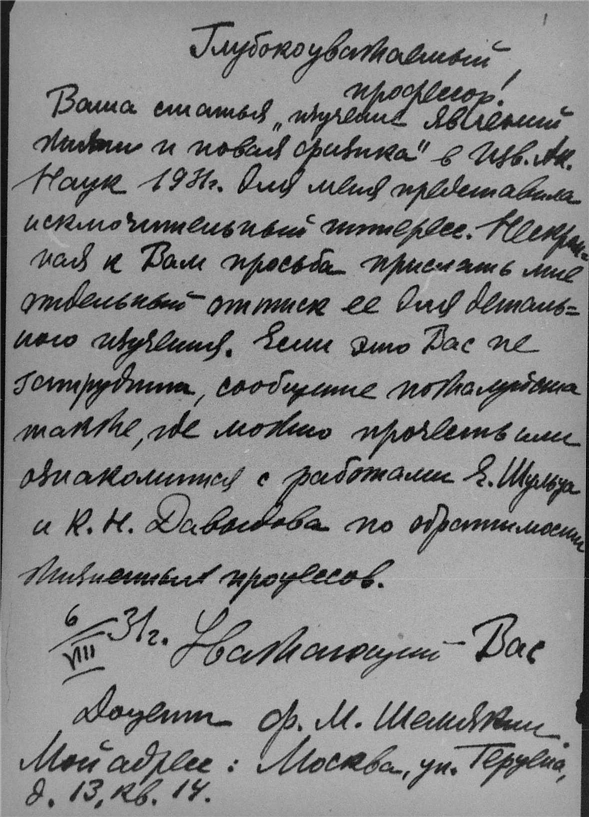 1
Глубокоуважаемый
профессор!
Ваша статья „изучение явлений
жизни и новая физика" в Изв. Ак.
Наук 1931г. для меня представила
исключительный интерес. Искрен-
няя к Вам просьба прислать мне
отдельный оттиск ее для деталь=
ного изучения. Если это Вас не
затруднит, сообщите пожалуйста
также, где можно прочесть или
ознакомится с работами Е. Шульца
и К. Н. Давыдова по обратимости
жизненных процессов.
6/VIII 31г. Уважающий Вас
Доцент Ф. М. Шемякин.
Мой адрес: Москва, ул. Герцена,
д. 13, кв. 14.